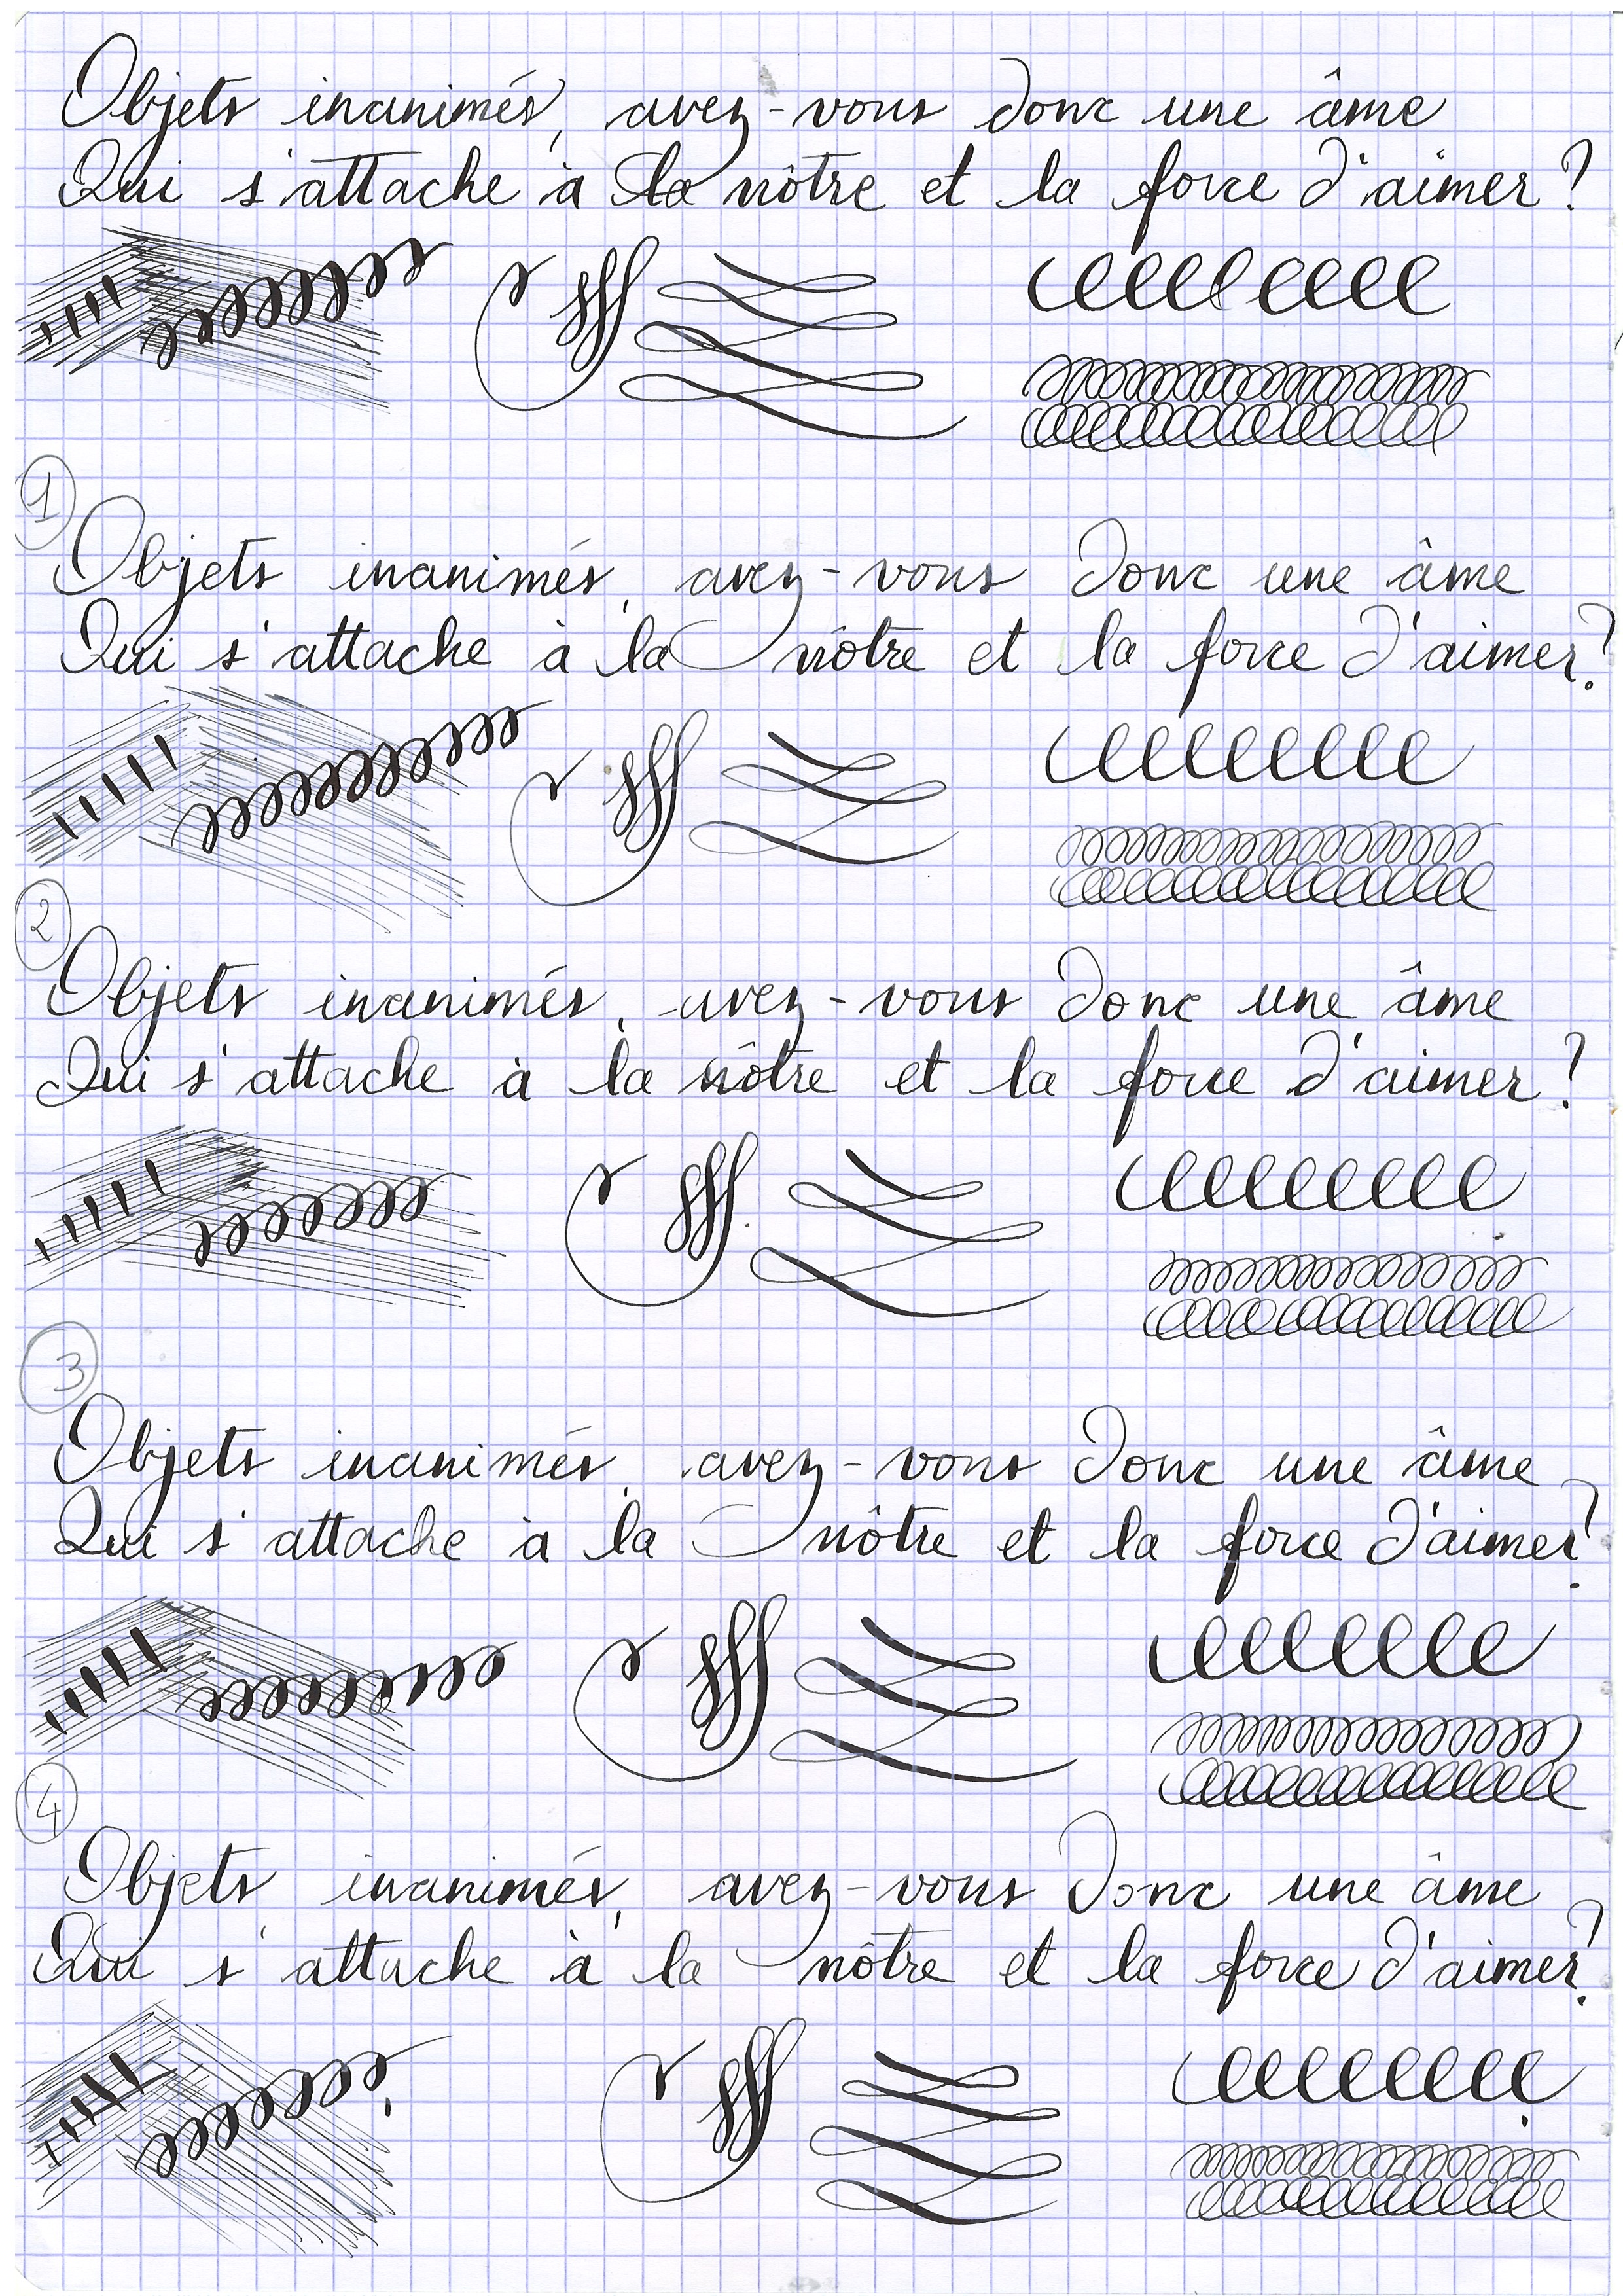 Objets inanimés, avez-vous donc une âme
Qui s'attache à la nôtre et la force d'aimer ?
1
Objets inanimés, avez-vous donc une âme
Qui s'attache à la nôtre et la force d'aimer ?
2
Objets inanimés, avez-vous donc une âme
Qui s'attache à la nôtre et la force d'aimer ?
3
Objets inanimés, avez-vous donc une âme
Qui s'attache à la nôtre et la force d'aimer ?
4
Objets inanimés, avez-vous donc une âme
Qui s'attache à la nôtre et la force d'aimer ?